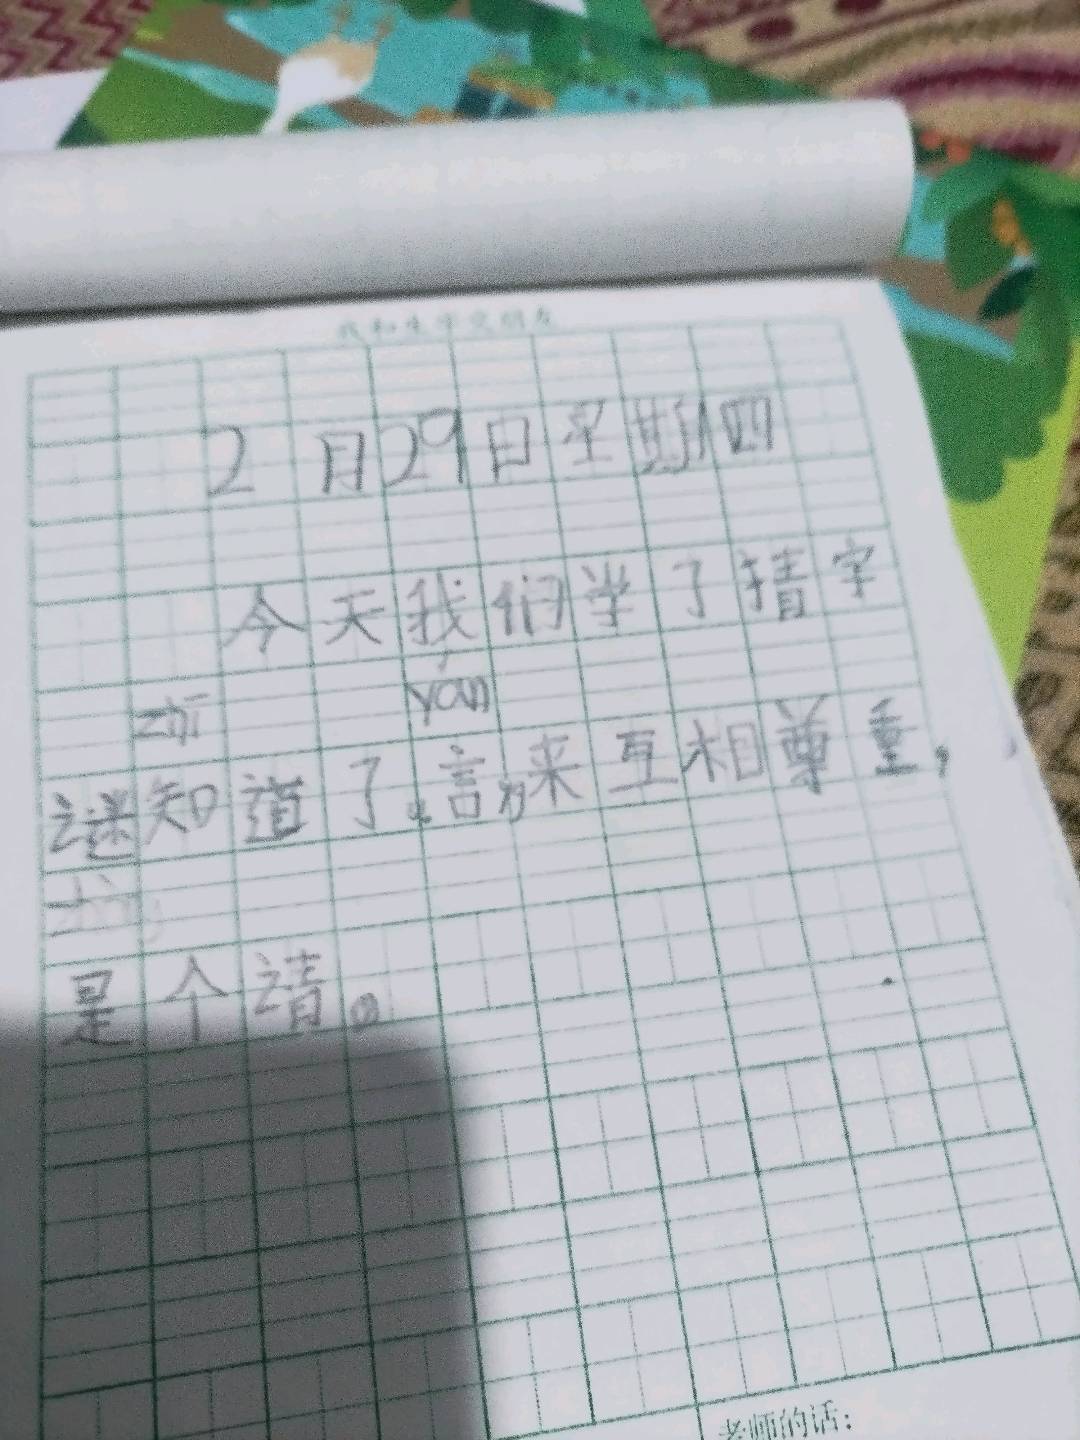 我和生字交朋友
2月29日星期四
今天我们学了猜字
zhī
yán
谜知道了“言”来互相尊重，
是个请。
老师的话：